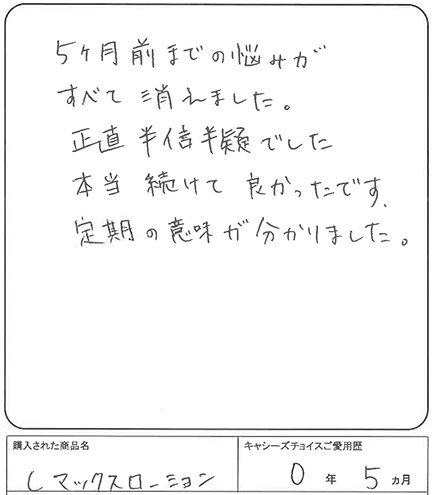 5ヶ月前までの悩みが
すべて消えました。
正直半信半疑でした
本当続けて良かったです、
定期の意味が分かりました。
購入された商品名
キャシーズチョイスご愛用歴
Cマックスローション
0年5ヵ月